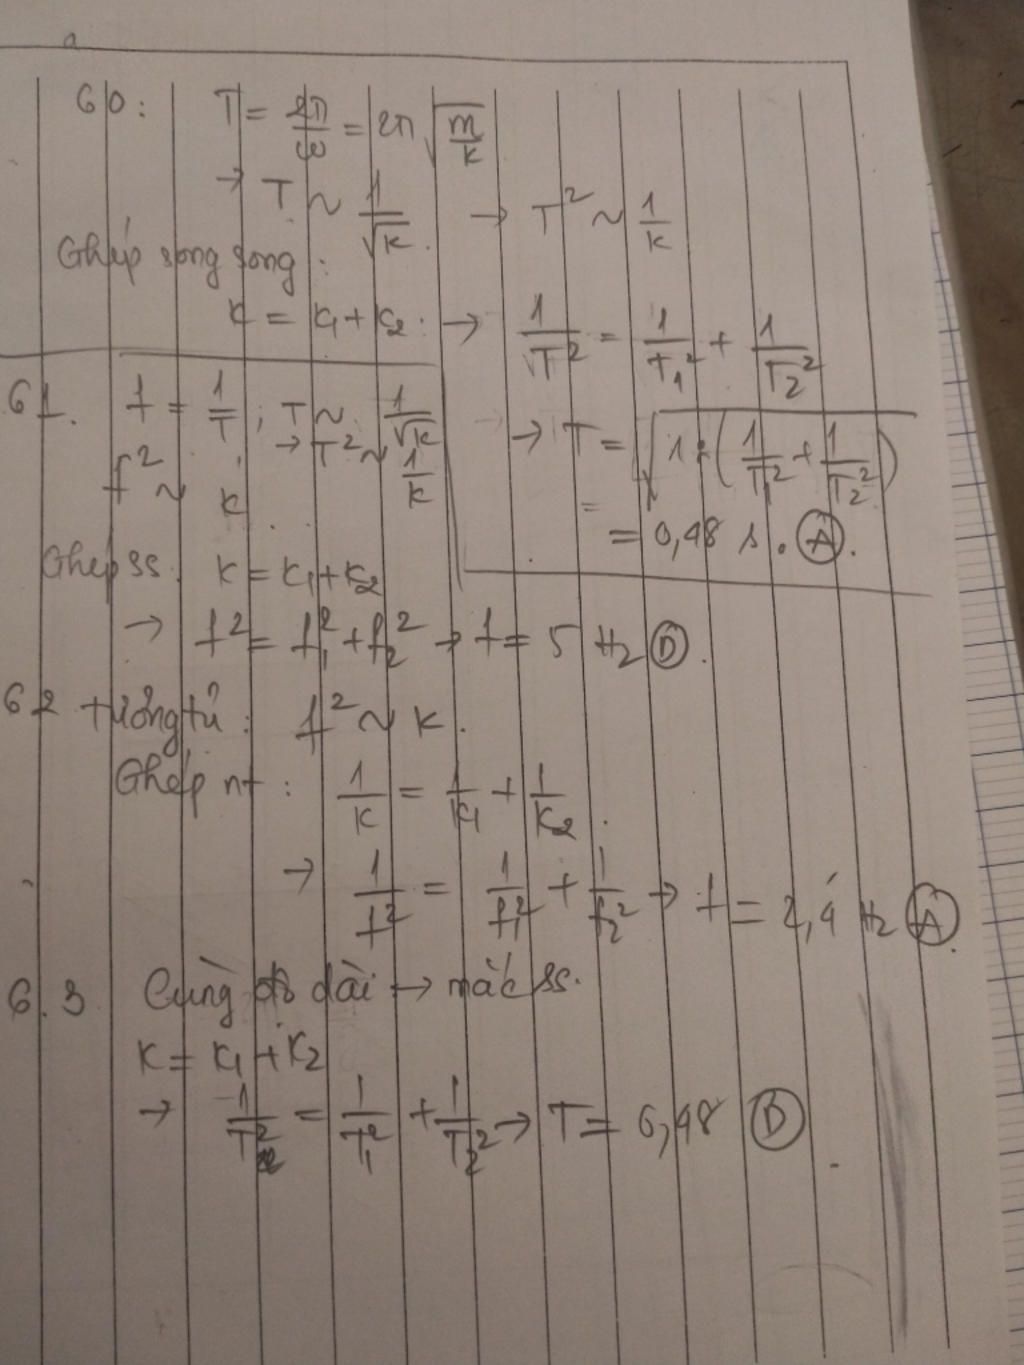 60: T = 2π/ω = 2π √(m/k)
→ T ~ 1/√k. → T² ~ 1/k
Ghép song song:
k = k₁ + k₂. → 1/T² = 1/T₁² + 1/T₂²
→ T = √(1 : (1/T₁² + 1/T₂²))
= 0,48 s. Ⓐ.
61. f = 1/T; T ~ 1/√k
→ T² ~ 1/k
f² ~ k
Ghép ss. k = k₁ + k₂
→ f² = f₁² + f₂² → f = 5 Hz Ⓓ.
62 tương tự: f² ~ k.
Ghép nt: 1/k = 1/k₁ + 1/k₂.
→ 1/f² = 1/f₁² + 1/f₂² → f = 2,4 Hz Ⓐ.
63 Cùng độ dài → mắc ss.
k = k₁ + k₂
→ 1/T² = 1/T₁² + 1/T₂² → T = 0,48